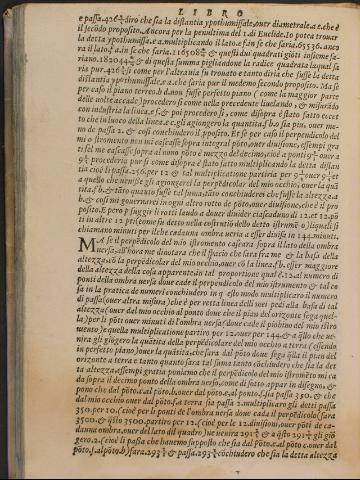 LIBRO
e passa.426 6/7 diro che sia la distantia ypothumissale, ouer diametrale.a e.che è
il secōdo proposito. Ancora per la penultima del 1.di Euclide. Io potea trouar
la detta ypothumissa.e a.multiplicando il lato.e f.in se che faria,65536. anco
ra il lato.f a.in se che faria.116508 & questi dui quadrati giōti insieme fa-
riano.182044 & di questa summa pigliandone la radice quadrata laqual sa
ria pur.426 si come per l'altra uia fu trouato e tanto diria che fusse la detta
distantia ypothumissale.e a.che saria pur il medemo secondo proposito. Ma se
per caso il piano terreo. b d.non fusse perfetto piano (come la maggior parte
delle uolte accade) procedero si come nella precedente liuelando, & misurādo
con industria la linea.e f.& poi procedero si, come disopra è stato fatto eccet
to che in luoco della linea.e c.gli agiongero la quantita.f b.o sia piu, ouer me-
no de passa 2. & cosi conchiudero il pposito. Et se per caso il perpendicolo del
mi o istromento non mi cascasse sopra integral pōto, ouer diuisione, essempi gra
tia se me cascasse sopra al nono pōto è mezzo del decimo, cioè a ponti 9 1/2 ouer a
9 1/2 procederia pur si come disopra è stato fatto multiplicando la detta distan
tia cioè li passa.256.per 12 & tal multiplicatione partiria per 9 1/2 ouer 9 1/2 et
a quello che uenisse gli agiongerei la perpēdicolar del mio occhio, ouer la quā
tita.f b.& tāto quanto fusse tal sūma, tāto conchiuderei che fusse la altezza.a
b.& cosi mi gouernarei in ogni altro rotto de pōto, ouer diuisione, che è il pro
posito. E pero p fuggir li rotti laudo a douer diuider ciascaduno di 12.et 12.pō
ti in altre 12 pti (come fu detto nella costruttiō dello detto istrumēto) liquali si
chiamano minuti per ilche cadauna ombra ueria a esser diuisa in 144.minuti.
MA se il perpēdicolo del mio istromento cascara sopra il lato della ombra
uersa, all'hora me dinotara che il spacio che sara fra me & la basa della
altezza, tō la perpēdicolar del mio occhio, ouer cō la linea.f b.esser maggiore
della altezza della cosa apparente, in tal proportione qual è.12.al numero di
ponti della ombra uersa doue cade il perpendicolo del mio istrumento & tal co
sa in la pratica de numeri conchiudero in q̄sto modo multiplicaro il numero
di passa (ouer altra misura) che è per retta linea delli miei pedi alla basa di tal
altezza (ouer dal mio occhio al ponto doue che il pian del orizonte sega quel-
la) per li pōti ouer minuti di l'ombra uersa (doue cade il piobino del mio istro
mento) e quella multiplicatione partiro per 12.ouer per 144.& a q̄llo che ue-
nira gli giōgero la quātita della perpēdicolare del mio occhio a terra (essendo
in perfetto piano) ouer la quātita, che sara dal pōto doue sega q̄lla il pian del
orizonte a terra e tanto quanto sara tal suma tanto cōchiudero che sia la det
ta altezza, essempi gratia poniamo che il perpendicolo del mio istromēto mi ca
da sopra il decimo ponto della ombra uersa, come di sotto appar in disegno, &
pono che dal pōto.c.al pōto.b.ouer dal pōto.e.al ponto.f.sia passa 350. & che
dal mio occhio ouer dal pōto.f.a terra sia passa 2.multiplicaro gli detti passa
350.per 10. (cioè per li ponti de l'ombra uersa doue cada il perpēdicolo) fara
3500.& q̄sto 3500.partiro per 12. (cioè per le 12.diuisioni, ouer pōti de ca-
dauna ombra, ouer del lato dil quadro) ne uenira 291 2/3 & a q̄sto 291 2/3 gli giō
gero.2. (cioè li passa che hauemo suppposto che sia dal pōto.e.al pōto c.ouer dal
pōto.f.al pōto.b) fara.293 2/3 & passa.293 2/3 cōchiudero che sia la detta altezza